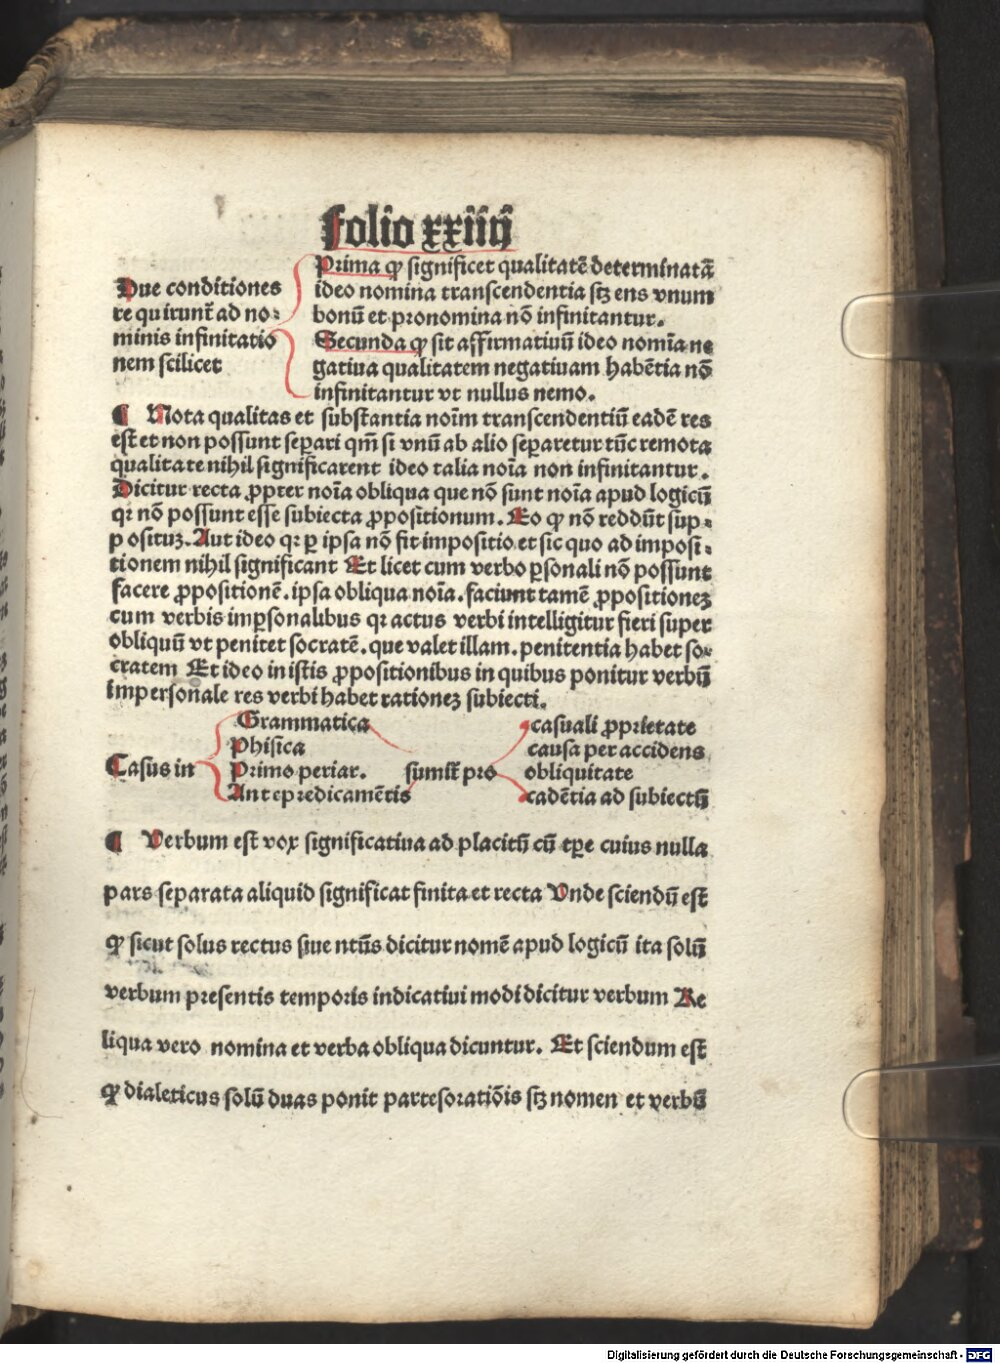 folio xxiiij
Due conditiones
requirunt̄ ad no⸗
minis infinitatio
nem scilicet
Prima ꝙ significet qualitatē determinatā
ideo nomina transcendentia sꝫ ens vnum
bonū et pronomina nō infinitantur.
Secunda ꝙ sit affirmatiuū ideo nomīa ne
gatiua qualitatem negatiuam habētia nō
infinitantur vt nullus nemo.
¶ Nota qualitas et substantia noīm transcendentiū eadē res
est et non possunt seꝑari qm̄ si vnū ab alio seꝑaretur tūc remota
qualitate nihil significarent ideo talia noīa non infinitantur.
Dicitur recta ꝓpter noīa obliqua que nō sunt noīa apud logicū
qꝛ nō possunt esse subiecta ꝓpositionum. Eo ꝙ nō reddūt sup⸗
posituꝫ. Aut ideo qꝛ ꝑ ipsa nō fit impositio et sic quo ad imposi⸗
tionem nihil significant Et licet cum verbo ꝑsonali nō possunt
facere ꝓpositionē. ipsa obliqua noīa. faciunt tamē ꝓpositioneꝫ
cum verbis imꝑsonalibus qꝛ actus verbi intelligitur fieri super
obliquū vt penitet socratē. que valet illam. penitentia habet so⸗
cratem Et ideo in istis ꝓpositionibus in quibus ponitur verbū
impersonale res verbi habet rationeꝫ subiecti.
Casus in
Grammatica
Phisica
Primo periar.
Antepredicamētis
sumit̄ pro
casuali ꝓprietate
causa per accidens
obliquitate
cadētia ad subiectū
¶ Verbum est vox significatiua ad placitū cū tꝑe cuius nulla
pars separata aliquid significat finita et recta Vnde sciendū est
ꝙ sicut solus rectus siue ntūs dicitur nomē apud logicū ita solū
verbum presentis temporis indicatiui modi dicitur verbum Re
liqua vero nomina et verba obliqua dicuntur. Et sciendum est
ꝙ dialeticus solū duas ponit partes oratiōis sꝫ nomen et verbū
Digitalisierung gefördert durch die Deutsche Forschungsgemeinschaft - DFG